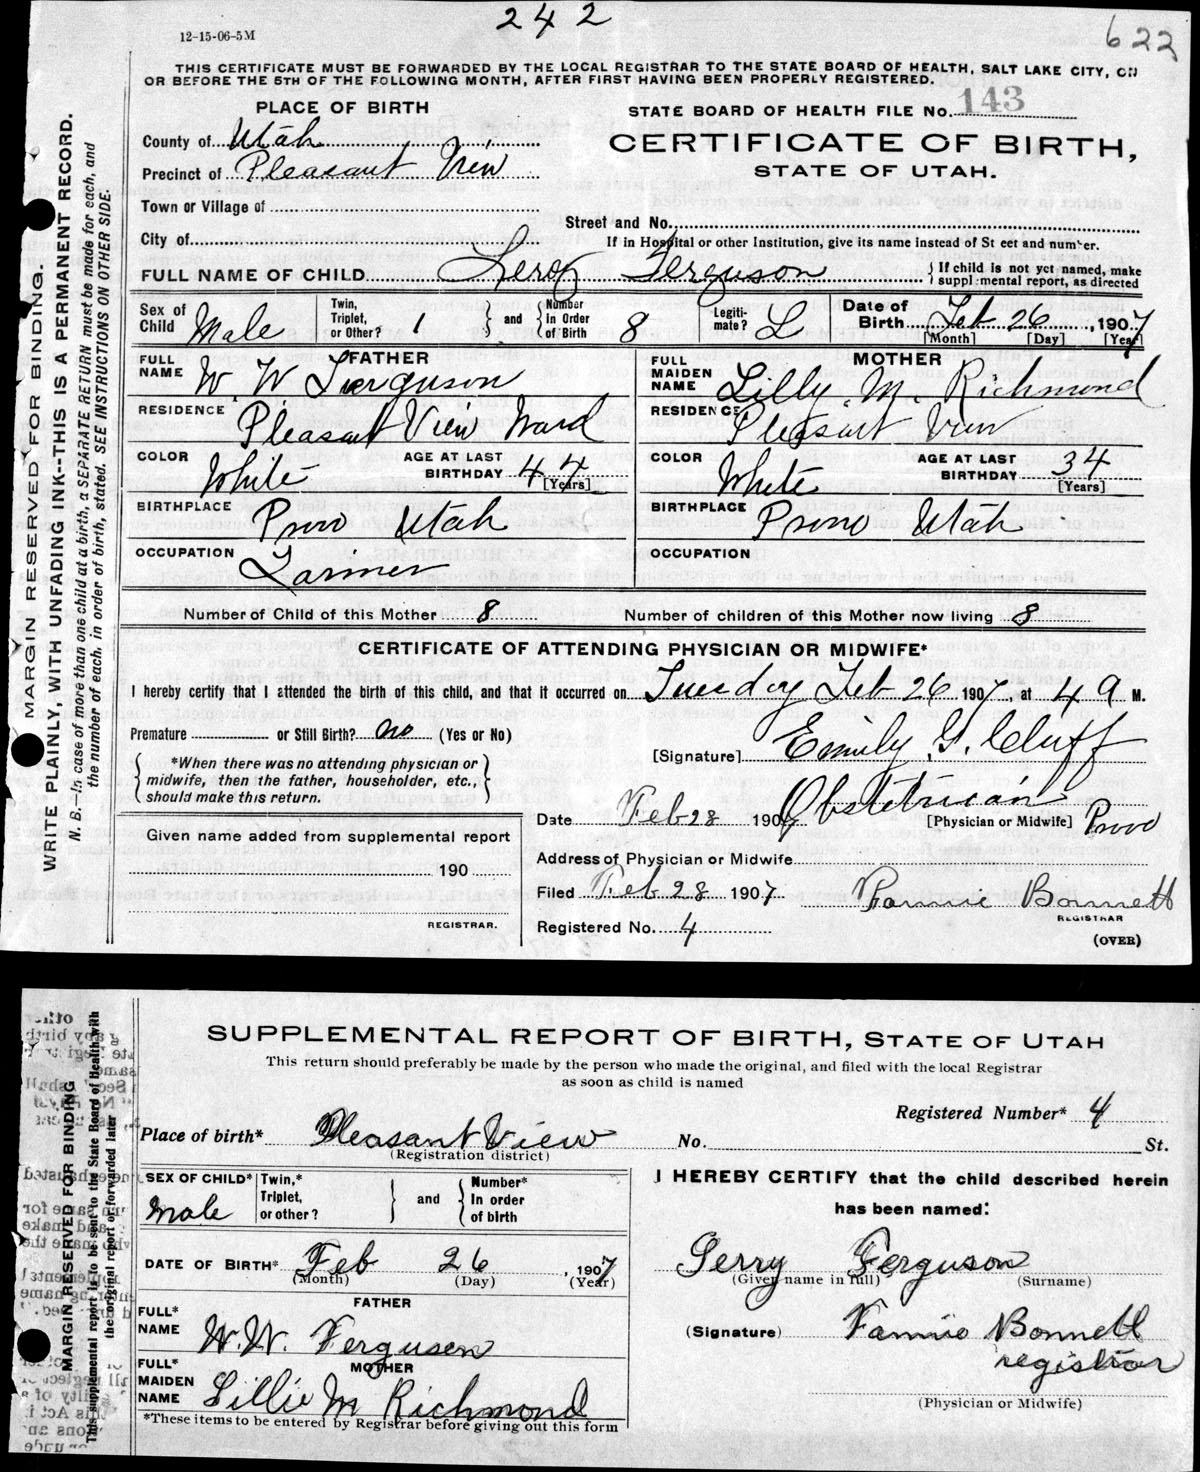 242
622
12-15-06-5M
THIS CERTIFICATE MUST BE FORWARDED BY THE LOCAL REGISTRAR TO THE STATE BOARD OF HEALTH, SALT LAKE CITY, ON
OR BEFORE THE 5TH OF THE FOLLOWING MONTH, AFTER FIRST HAVING BEEN PROPERLY REGISTERED.
PLACE OF BIRTH
STATE BOARD OF HEALTH FILE No. 143
County of Utah
CERTIFICATE OF BIRTH,
Precinct of Pleasant View
STATE OF UTAH.
Town or Village of
Street and No.
City of
If in Hospital or other Institution, give its name instead of St eet and number.
FULL NAME OF CHILD Leroy Ferguson { If child is not yet named, make
suppl mental report, as directed
Sex of Child Male Twin, Triplet, or Other? 1 } and { Number in Order of Birth 8 Legiti-mate? L Date of Birth Feb 26, 1907
[Month] [Day] [Year]
FATHER
FULL NAME W. W. Ferguson
RESIDENCE Pleasant View Ward
COLOR White AGE AT LAST BIRTHDAY 44
[Years]
BIRTHPLACE Provo Utah
OCCUPATION Farmer
MOTHER
FULL MAIDEN NAME Lilly M. Richmond
RESIDENCE Pleasant View
COLOR White AGE AT LAST BIRTHDAY 34
[Years]
BIRTHPLACE Provo Utah
OCCUPATION
Number of Child of this Mother 8 Number of children of this Mother now living 8
CERTIFICATE OF ATTENDING PHYSICIAN OR MIDWIFE*
I hereby certify that I attended the birth of this child, and that it occurred on Tuesday Feb 26 1907, at 4 a M.
Premature or Still Birth? no (Yes or No)
[Signature] Emily G. Cluff
{ *When there was no attending physician or
midwife, then the father, householder, etc.,
should make this return. }
Obstetrician
Date Feb 28 190 [Physician or Midwife] Provo
Given name added from supplemental report
190
REGISTRAR.
Address of Physician or Midwife
Filed Feb 28 1907 Fannie Bonnett
REGISTRAR
Registered No. 4
(OVER)
MARGIN RESERVED FOR BINDING.
WRITE PLAINLY, WITH UNFADING INK--THIS IS A PERMANENT RECORD.
N. B.—In case of more than one child at a birth, a SEPARATE RETURN must be made for each, and
the number of each, in order of birth, stated. SEE INSTRUCTIONS ON OTHER SIDE.
SUPPLEMENTAL REPORT OF BIRTH, STATE OF UTAH
This return should preferably be made by the person who made the original, and filed with the local Registrar
as soon as child is named
Registered Number* 4
Place of birth* Pleasant View No. St.
(Registration district)
SEX OF CHILD* Male Twin,* Triplet, or other? } and { Number* In order of birth
DATE OF BIRTH* Feb 26, 1907
(Month) (Day) (Year)
FATHER
FULL* NAME W. W. Ferguson
MOTHER
FULL* MAIDEN NAME Lillie M Richmond
*These items to be entered by Registrar before giving out this form
I HEREBY CERTIFY that the child described herein
has been named:
Gerry Ferguson
(Given name in full) (Surname)
(Signature) Fannie Bonnett
registrar
(Physician or Midwife)
MARGIN RESERVED FOR BINDING
This supplemental report is to be sent to the State Board of Health with
the original report or forwarded later